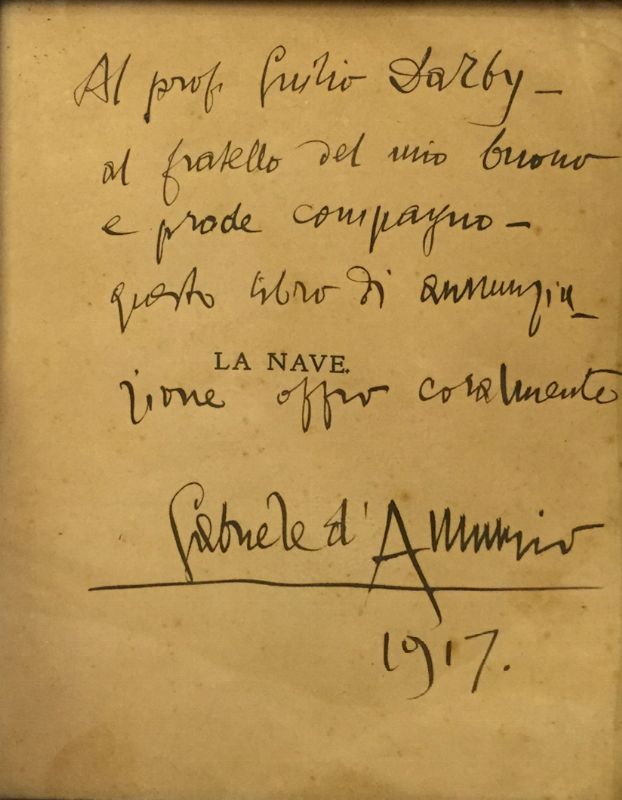 Al prof. Giulio Darby –
al fratello del mio buono
e prode compagno –
questo libro di annunzia_
LA NAVE.
zione offro coralmente
Gabriele d'Annunzio
1917.